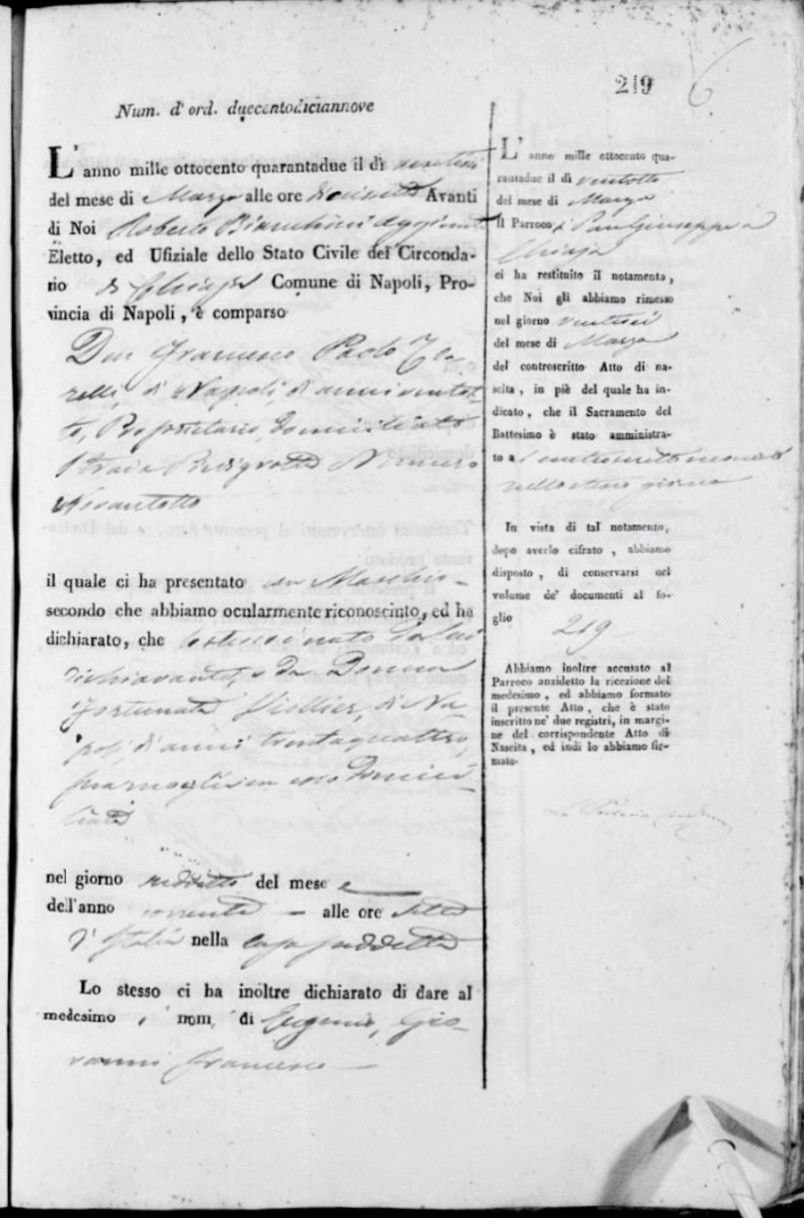 219
6
Num. d'ord. duecentodiciannove
L' anno mille ottocento quarantadue il dì ventisei
del mese di Marzo alle ore diciassette Avanti
di Noi Roberto Bianchini aggiunto
Eletto, ed Ufiziale dello Stato Civile del Circonda-
rio di Chiaja Comune di Napoli, Pro-
vincia di Napoli, è comparso
Don Francesco Paolo
relli, di Napoli di anni ventot
to, Proprietario, domiciliato
Strada Piedigrotta Numero
Novantotto
il quale ci ha presentato un Maschio
secondo che abbiamo ocularmente riconosciuto, ed ha
dichiarato, che lo stesso è nato da lui
dichiarante, e da Donna
Fortunata di Na-
poli, di anni trentaquattro,
sua moglie in esso domici
liata
nel giorno suddetto del mese e
dell'anno corrente - alle ore sette
d'Italia nella casa suddetta
Lo stesso ci ha inoltre dichiarato di dare al
medesimo i nomi di Eugenio, Gio-
vanni Francesco
L' anno mille ottocento qua-
rantadue il dì ventotto
del mese di Marzo
Il Parroco di San Giuseppe a
Chiaja
ci ha restituito il notamento,
che Noi gli abbiamo rimesso
nel giorno ventisei
del mese di Marzo
del controscritto Atto di na-
scita, in piè del quale ha in-
dicato, che il Sacramento del
Battesimo è stato amministra-
to a
nello stesso giorno
In vista di tal notamento,
dopo averlo cifrato, abbiamo
disposto, di conservarsi nel
volume de' documenti al fo-
glio 219
Abbiamo inoltre accusato al
Parroco anzidetto la ricezione del
medesimo, ed abbiamo formato
il presente Atto, che è stato
inscritto ne' due registri, in margi-
ne del corrispondente Atto di
Nascita, ed indi lo abbiamo fir-
mato.